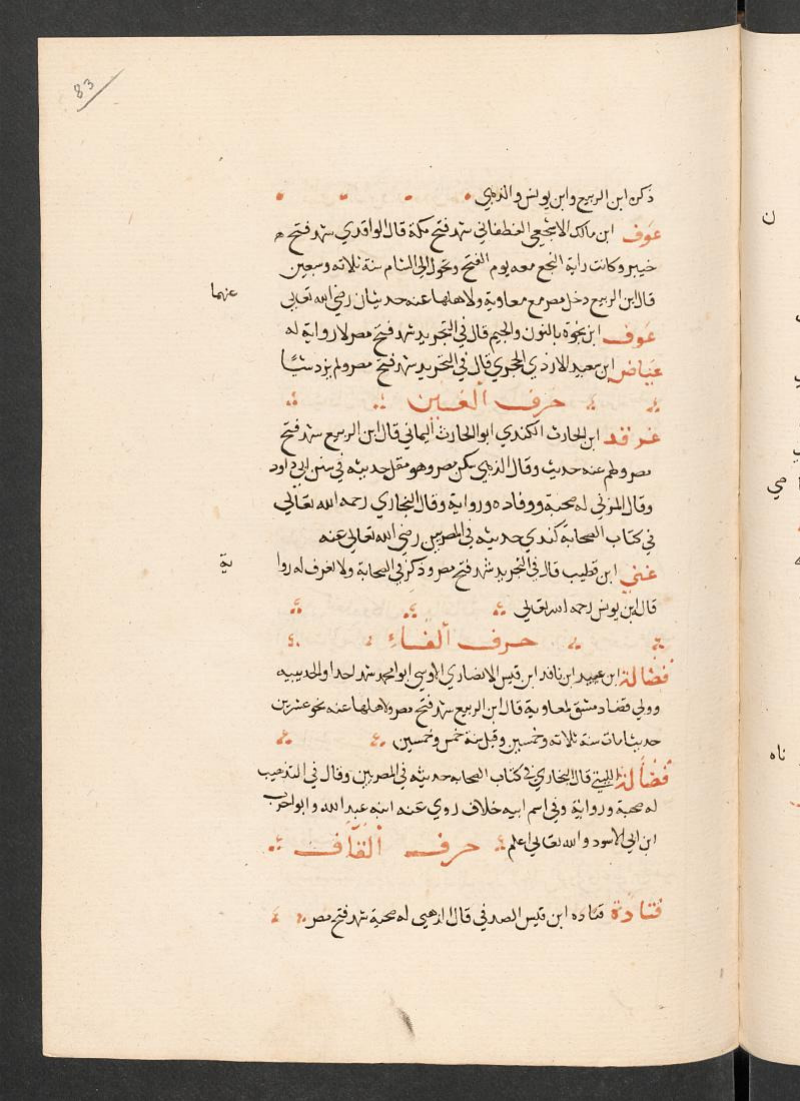 83
ذكره ابن الربيع وابن يونس والذهبي
عوف ابن مالك الاشجعي الغطفاني شهد فتح مكة قال الواقدي شهد فتح
خيبر وكانت راية اشجع معه يوم الفتح وتحول الى الشام سنة ثلاثه وسبعين
قال ابن الربيع دخل مصر مع معاوية ولاهلها عنه حديثان رضي الله تعالى
عنهما
عوف ابن نجوة بالنون والجيم قال في التجريد شهد فتح مصر لا رواية له
عياض ابن سعيد الازدي الحجري قال في التجريد شهد فتح مصر ولم يزد شيا
حرف الغين
غرقد ابن الحارث الكندي ابو الحارث اليماني قال ابن الربيع شهد فتح
مصر ولهم عنه حديث وقال الذهبي سكن مصر وهو مقل حديثه في سنن ابي داود
وقال المزني له صحبة ووفاده ورواية وقال البخاري رحمه الله تعالى
في كتاب الصحابة كندي حديثه في المصريين رضي الله تعالى عنه
غني ابن قطيب قال في التجريد شهد فتح مصر وذكر في الصحابة ولا تعرف له روا
ية
قال ابن يونس رحمه الله تعالى
حرف الفاء
فضالة ابن عبيد ابن نافد ابن قيس الانصاري الاوسي ابو محمد شهد احدا والحديبيه
وولي قضاء دمشق لمعاوية قال ابن الربيع شهد فتح مصر ولاهلها عنه نحو عشرين
حديثا مات سنة ثلاثه وخمسين وقيل سنة خمس وخمسين
فضالة الليثي قال البخاري في كتاب الصحابه حديثه في المصريين وقال في التذهيب
له صحبة ورواية وفي اسم ابيه خلاف روي عنه ابنه عبد الله وابو حرب
ابن ابي الاسود والله تعالى اعلم حرف القاف
قتادة قتاده ابن قيس الصدفي قال الذهبي له صحبة شهد فتح مصر